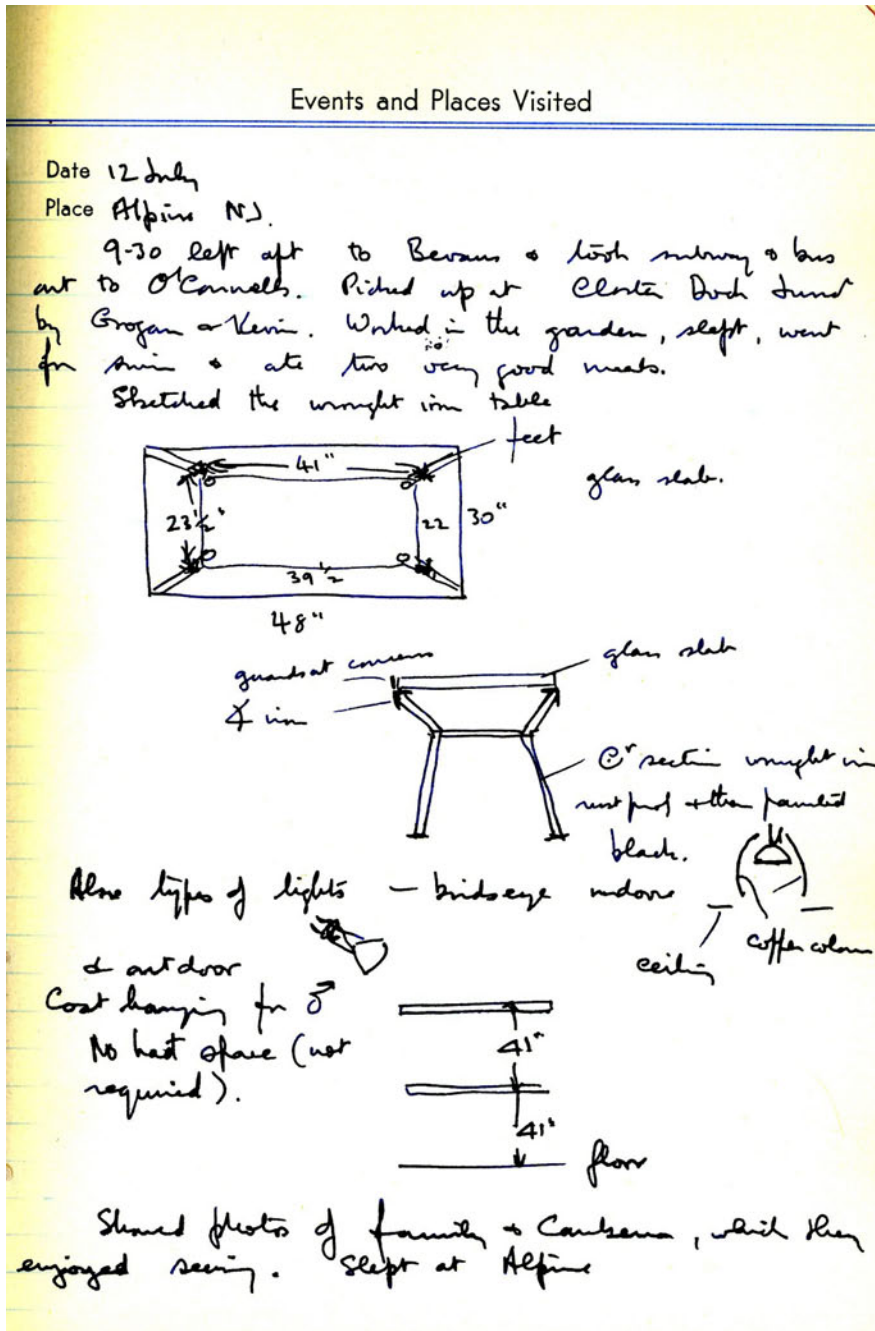 Events and Places Visited
Date 12 July
Place Alpine NJ.
9-30 left apt to Bevans & took subway & bus
out to O'Connells. Picked up at Closter Dock
by Grogan & Kevin. Worked in the garden, slept, went
for swim & ate two very good meals.
Sketched the wrought iron table
feet
41"
glass slab.
23½"
22
30"
39½
48"
guards at corners
glass slab
∠ iron
section wrought iron
rust proof & then painted
black.
Also types of lights — birdseye indoors
ceiling
copper colour
& outdoor
Coat hanging for ♂
No hat space (not
required).
41"
41"
floor
Showed photos of family & Canberra, which they
enjoyed seeing. Slept at Alpine